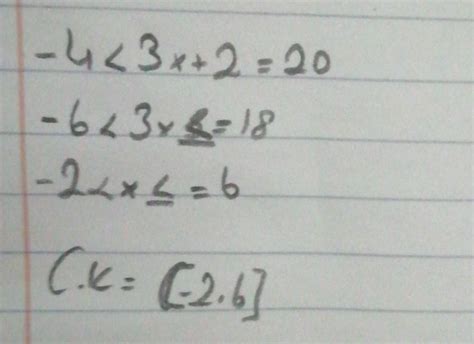 -4<3x+2=20
-6<3x≤=18
-2<x≤=6
Ç.K=[-2.6]